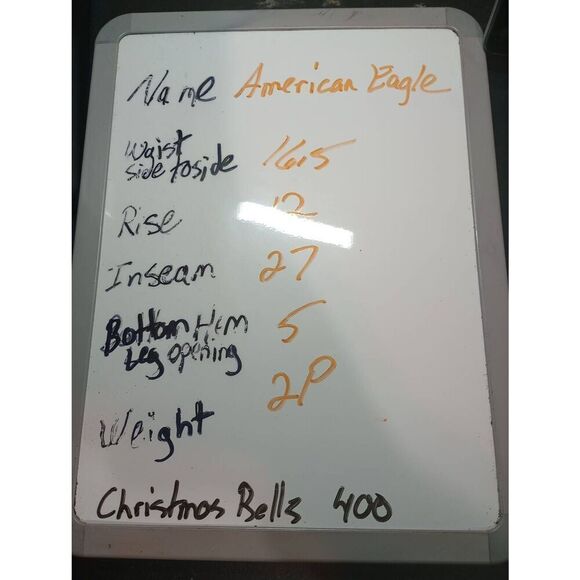 Name American Eagle
Waist
side toside 16.5
Rise 12
Inseam 27
Bottom Hem 5
Leg opening
Weight 2P
Christmas Bells 400